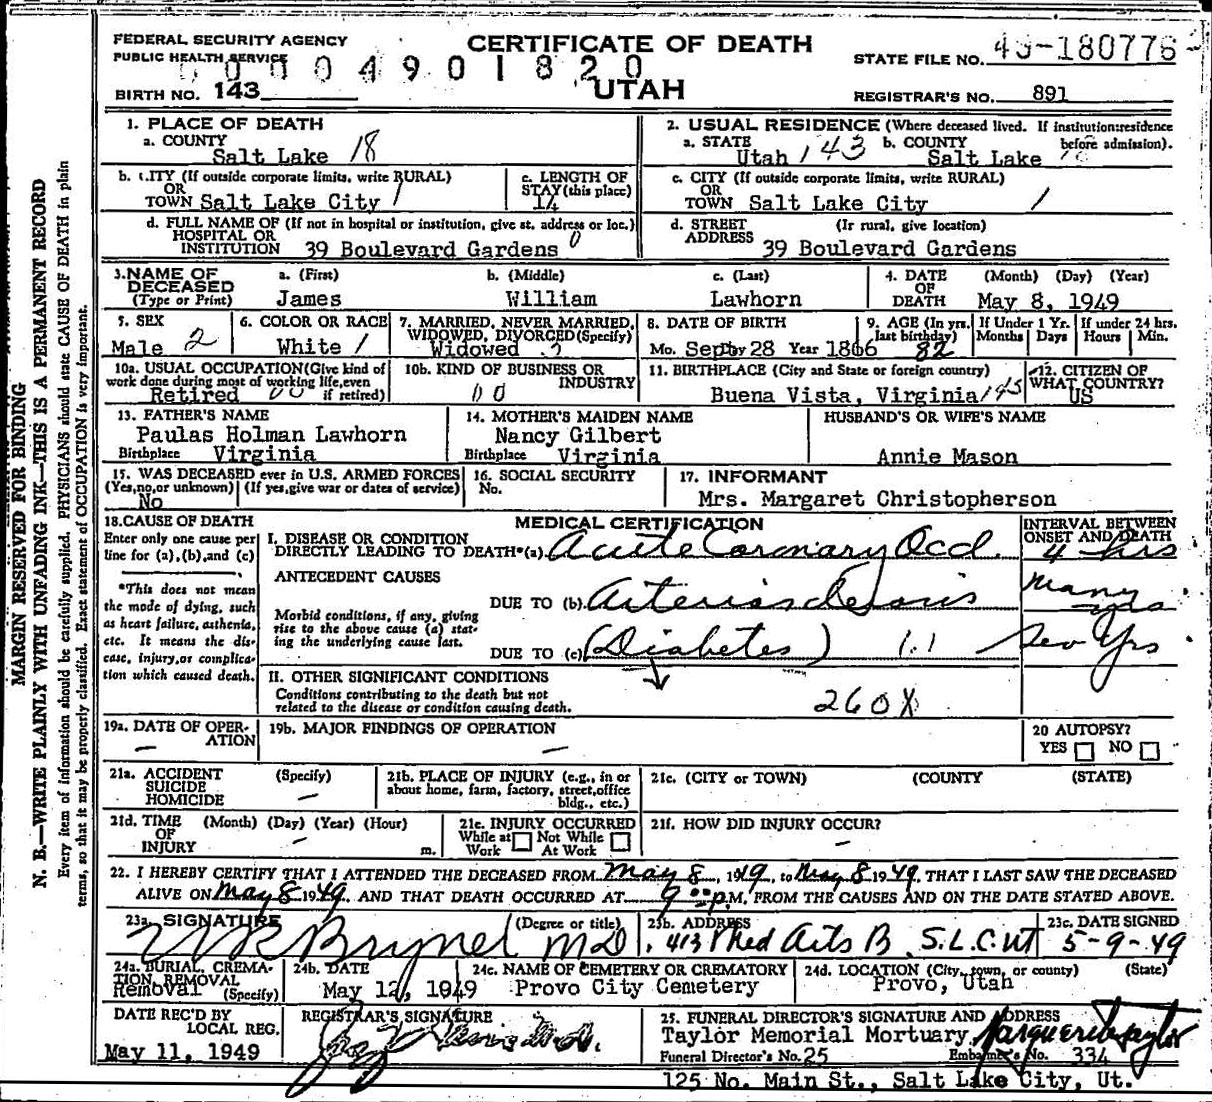 FEDERAL SECURITY AGENCY
PUBLIC HEALTH SERVICE
CERTIFICATE OF DEATH
STATE FILE NO. 49-180776
00004901820
BIRTH NO. 143
UTAH
REGISTRAR'S NO. 891
1. PLACE OF DEATH
a. COUNTY
Salt Lake 18
2. USUAL RESIDENCE (Where deceased lived. If institution:residence before admission).
a. STATE Utah 143 b. COUNTY Salt Lake
b. CITY (If outside corporate limits, write RURAL)
OR
TOWN Salt Lake City 1
c. LENGTH OF STAY (this place)
14
c. CITY (If outside corporate limits, write RURAL)
OR
TOWN Salt Lake City 1
d. FULL NAME OF (If not in hospital or institution, give st. address or loc.)
HOSPITAL OR
INSTITUTION 39 Boulevard Gardens 0
d. STREET ADDRESS (If rural, give location)
39 Boulevard Gardens
3. NAME OF DECEASED (Type or Print)
a. (First) b. (Middle) c. (Last)
James William Lawhorn
4. DATE OF DEATH (Month) (Day) (Year)
May 8, 1949
5. SEX
Male 2
6. COLOR OR RACE
White 1
7. MARRIED, NEVER MARRIED, WIDOWED, DIVORCED (Specify)
Widowed
8. DATE OF BIRTH
Mo. Sept Day 28 Year 1866
9. AGE (In yrs. last birthday)
82
If Under 1 Yr. Months Days
If under 24 hrs. Hours Min.
10a. USUAL OCCUPATION (Give kind of work done during most of working life, even if retired)
Retired 00
10b. KIND OF BUSINESS OR INDUSTRY
00
11. BIRTHPLACE (City and State or foreign country)
Buena Vista, Virginia 145
12. CITIZEN OF WHAT COUNTRY?
US
13. FATHER'S NAME
Paulas Holman Lawhorn
Birthplace Virginia
14. MOTHER'S MAIDEN NAME
Nancy Gilbert
Birthplace Virginia
HUSBAND'S OR WIFE'S NAME
Annie Mason
15. WAS DECEASED ever in U.S. ARMED FORCES
(Yes, no, or unknown) (If yes, give war or dates of service)
No
16. SOCIAL SECURITY No.
17. INFORMANT
Mrs. Margaret Christopherson
18. CAUSE OF DEATH
Enter only one cause per line for (a), (b), and (c)
*This does not mean the mode of dying, such as heart failure, asthenia, etc. It means the disease, injury, or complication which caused death.
MEDICAL CERTIFICATION
INTERVAL BETWEEN ONSET AND DEATH
I. DISEASE OR CONDITION
DIRECTLY LEADING TO DEATH*(a) Acute Coronary Occl. 4 hrs
ANTECEDENT CAUSES
Morbid conditions, if any, giving rise to the above cause (a) stating the underlying cause last.
DUE TO (b) Arteriosclerosis many yrs
DUE TO (c) (Diabetes) Sev yrs
II. OTHER SIGNIFICANT CONDITIONS
Conditions contributing to the death but not related to the disease or condition causing death.
260X
19a. DATE OF OPERATION
—
19b. MAJOR FINDINGS OF OPERATION
—
20 AUTOPSY?
YES NO
21a. ACCIDENT SUICIDE HOMICIDE (Specify)
—
21b. PLACE OF INJURY (e.g., in or about home, farm, factory, street, office bldg., etc.)
21c. (CITY or TOWN) (COUNTY) (STATE)
21d. TIME OF INJURY (Month) (Day) (Year) (Hour)
— m.
21e. INJURY OCCURRED
While at Work Not While At Work
21f. HOW DID INJURY OCCUR?
—
22. I HEREBY CERTIFY THAT I ATTENDED THE DECEASED FROM May 8, 1949, to May 8 1949, THAT I LAST SAW THE DECEASED
ALIVE ON May 8 1949, AND THAT DEATH OCCURRED AT 9:00 p.M, FROM THE CAUSES AND ON THE DATE STATED ABOVE.
23a. SIGNATURE (Degree or title)
MD
23b. ADDRESS
413 Med Arts B. S.L.C. UT
23c. DATE SIGNED
5-9-49
24a. BURIAL, CREMATION, REMOVAL (Specify)
Removal
24b. DATE
May 12, 1949
24c. NAME OF CEMETERY OR CREMATORY
Provo City Cemetery
24d. LOCATION (City, town, or county) (State)
Provo, Utah
DATE REC'D BY LOCAL REG.
May 11, 1949
REGISTRAR'S SIGNATURE
25. FUNERAL DIRECTOR'S SIGNATURE AND ADDRESS
Taylor Memorial Mortuary, Marguerite Taylor
Funeral Director's No. 25 Embalmer's No. 334
125 No. Main St., Salt Lake City, Ut.
MARGIN RESERVED FOR BINDING
N. B.—WRITE PLAINLY WITH UNFADING INK—THIS IS A PERMANENT RECORD
Every item of information should be carefully supplied. PHYSICIANS should state CAUSE OF DEATH in plain
terms, so that it may be properly classified. Exact statement of OCCUPATION is very important.